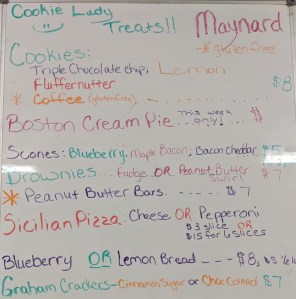 Cookie Lady
Treats!! Maynard
* gluten free
Cookies:
Triple Chocolate chip, Lemon
Fluffernutter $8
* Coffee (gluten free)
Boston Cream Pie... This week only! $
Scones: Blueberry, Maple Bacon, Bacon Cheddar $5
Brownies... Fudge OR Peanut Butter Swirl $7
* Peanut Butter Bars. ---- $7
Sicilian Pizza: Cheese OR Pepperoni
$3 slice OR
$15 for 6 slices
Blueberry OR Lemon Bread --- $8, $5 ½
Graham Crackers - Cinnamon Sugar or Choc Covered $7